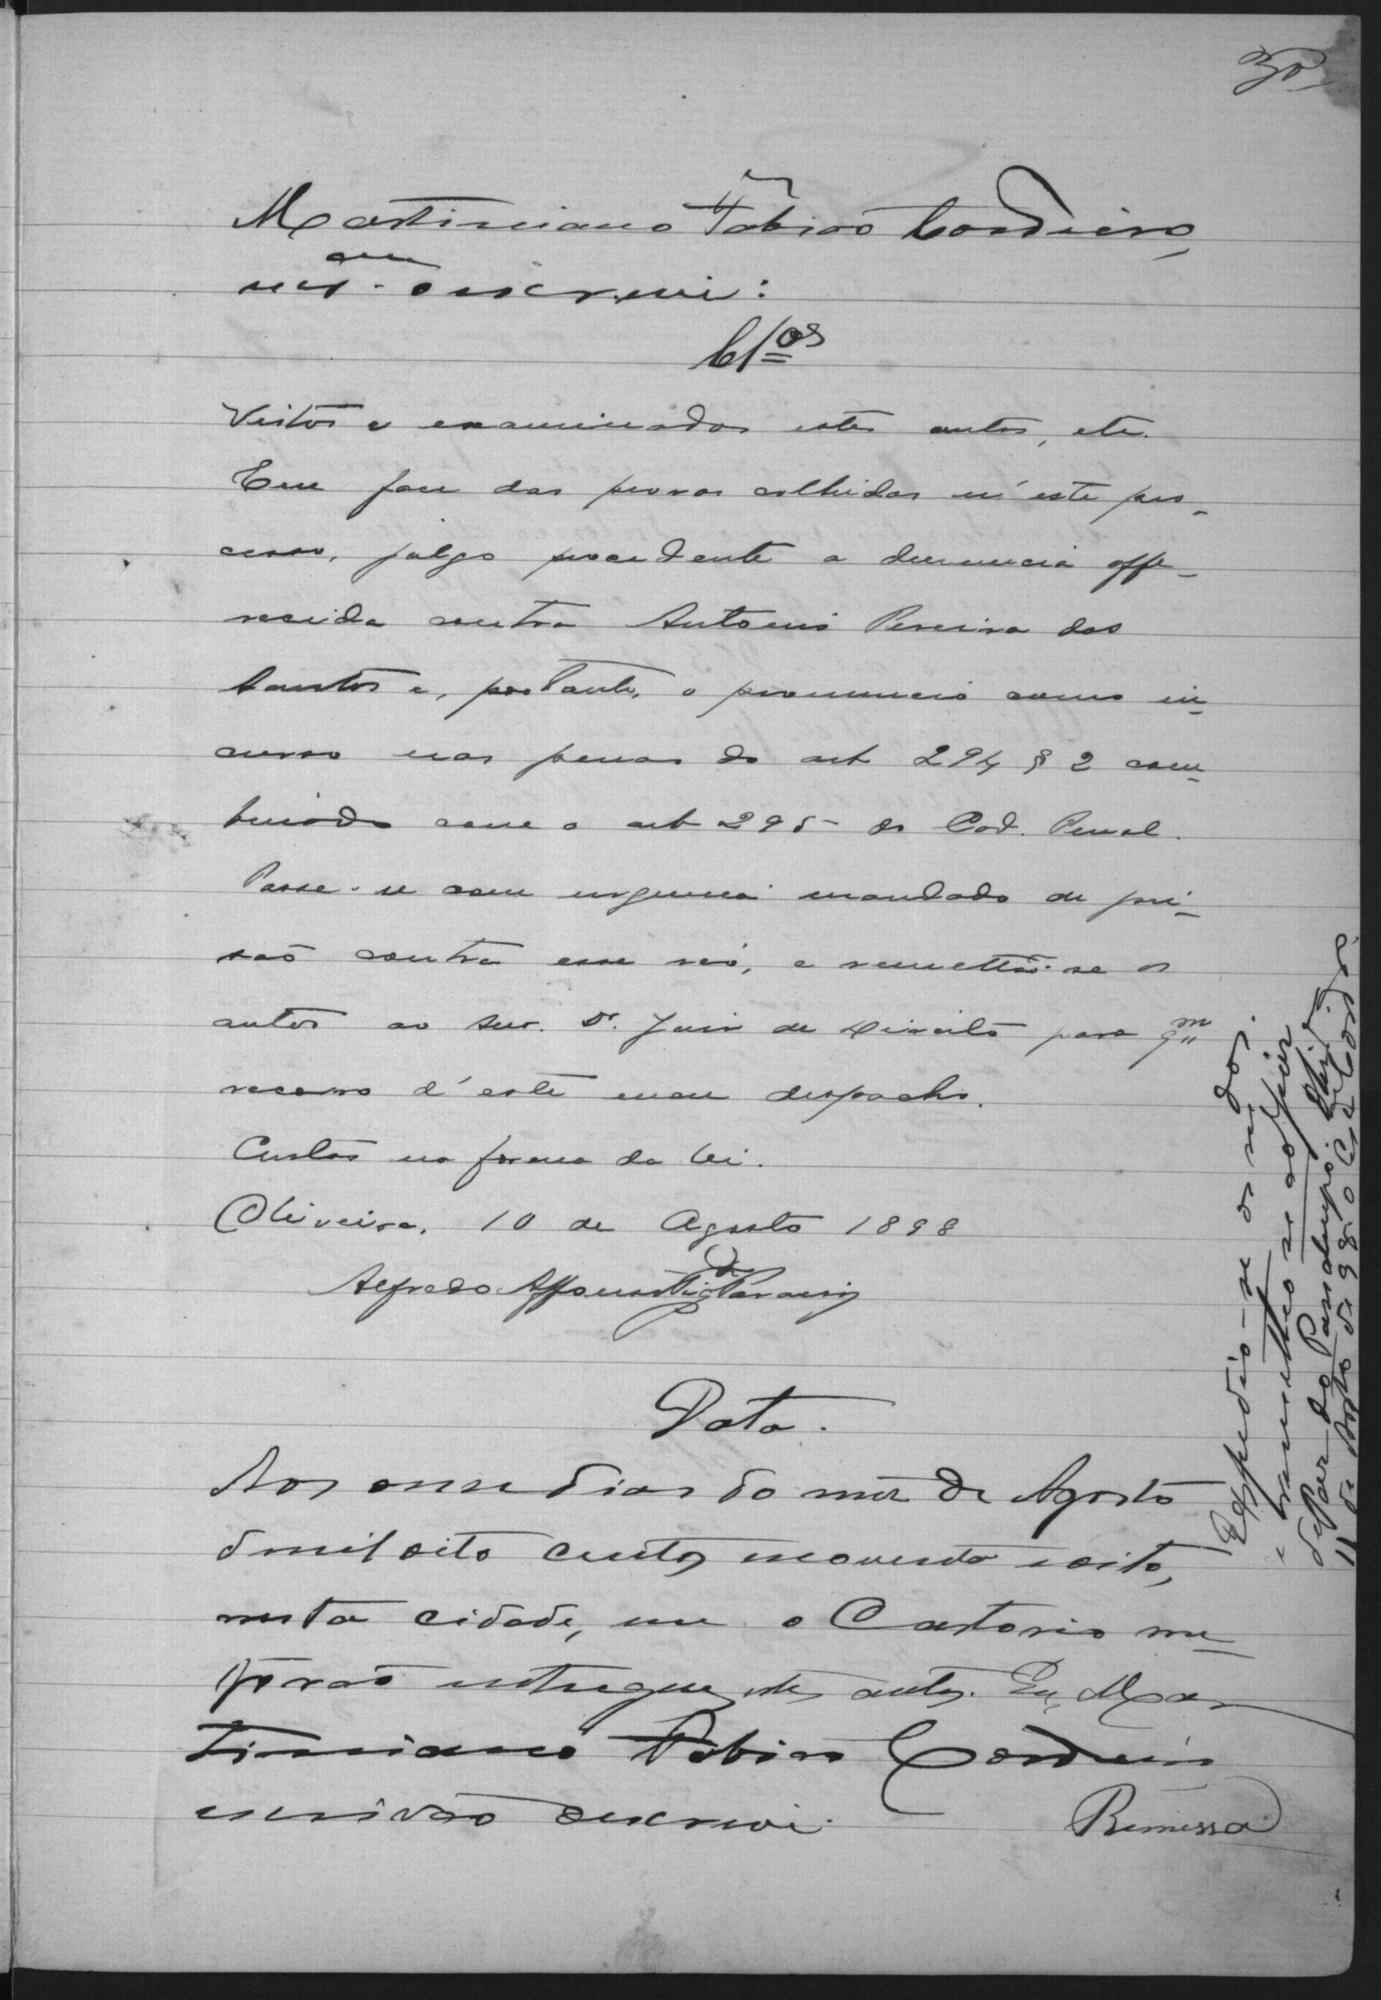 30
Martiniano Tobias Cordeiro,
escr.am o escrevi:
Cl.os
Vistos e examinados estes autos, etc.
Em face das provas colhidas n'este pro-
cesso, julgo procedente a denuncia offe-
recida contra Antonio Pereira dos
Santos e, portanto, o pronuncio como in-
curso nas penas do art 294 § 2 com-
binado com o art 295 do Cod. Penal.
Passe-se com urgencia mandado de pri-
saõ contra esse réo, e remettaõ-se os
autos ao snr. Dr. Juiz de Direito para q.m
recorro d'este meu despacho.
Custas na forma da lei.
Oliveira, 10 de Agosto 1898
Alfredo Affonso
Data.
Aos onze dias do mez de Agosto
de mil oito centos e noventa e oito,
nesta cidade, em o Cartorio me
foraõ entregues estes autos. Eu, Mar
tiniano Tobias Cordeiro
escrivão o escrevi.
Remessa
Expedio-se os mdos.
e remetteo se ao
11 de Agosto de 98 o Es. Cordrº